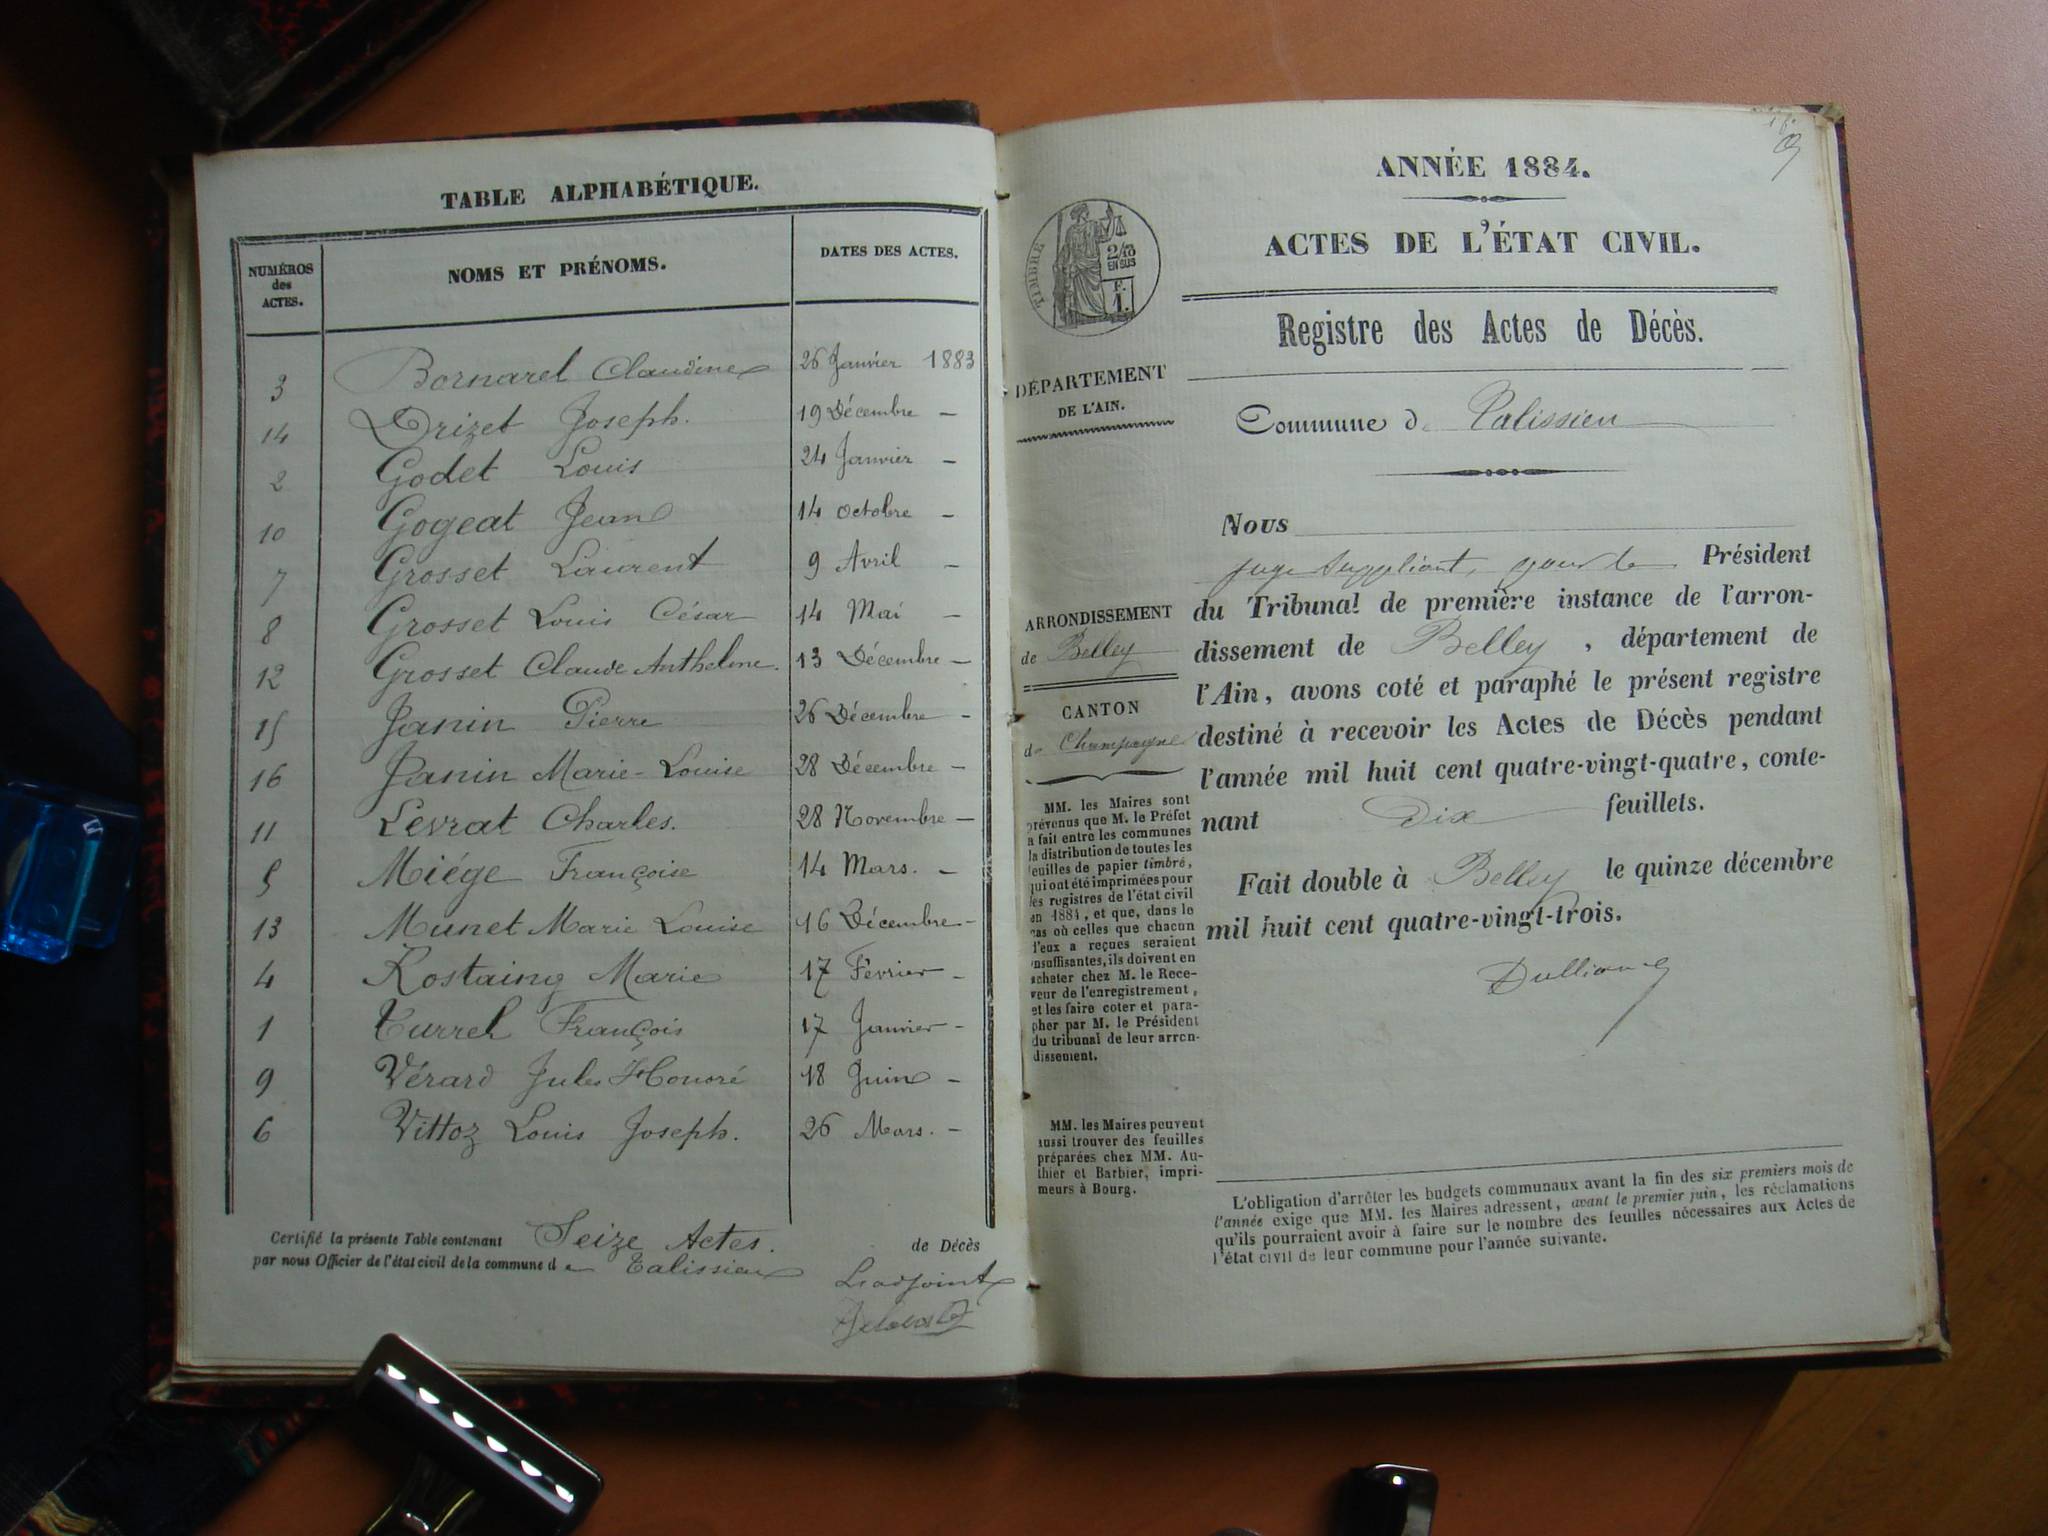 TABLE ALPHABÉTIQUE.
NUMÉROS des ACTES.
NOMS ET PRÉNOMS.
DATES DES ACTES.
3 Bornarel Claudine 26 Janvier 1883
14 Drizet Joseph. 19 Décembre –
2 Godet Louis 24 Janvier –
10 Gogeat Jean 14 Octobre –
7 Grosset Laurent 9 Avril –
8 Grosset Louis César 14 Mai –
12 Grosset Claude Anthelme. 13 Décembre –
15 Janin Pierre 26 Décembre –
16 Janin Marie-Louise 28 Décembre –
11 Levrat Charles. 28 Novembre –
5 Miége Françoise 14 Mars. –
13 Munet Marie Louise 16 Décembre –
4 Rostaing Marie 17 Février –
1 Turrel François 17 Janvier –
9 Vérard Jules Honoré 18 Juin –
6 Vittoz Louis Joseph. 26 Mars. –
Certifié la présente Table contenant Seize Actes. de Décès
par nous Officier de l'état civil de la commune de Talissieu
L'adjoint
ANNÉE 1884.
ACTES DE L'ÉTAT CIVIL.
TIMBRE
2/10
EN SUS
F.
1.
Registre des Actes de Décès.
DÉPARTEMENT
DE L'AIN.
Commune de Talissieu
ARRONDISSEMENT
de Belley
CANTON
de Champagne
MM. les Maires sont
prévenus que M. le Préfet
a fait entre les communes
la distribution de toutes les
feuilles de papier timbré,
qui ont été imprimées pour
les registres de l'état civil
en 1884, et que, dans le
cas où celles que chacun
d'eux a reçues seraient
insuffisantes, ils doivent en
acheter chez M. le Rece-
veur de l'enregistrement,
et les faire coter et para-
pher par M. le Président
du tribunal de leur arron-
dissement.
MM. les Maires peuvent
aussi trouver des feuilles
préparées chez MM. Au-
thier et Barbier, impri-
meurs à Bourg.
Nous
juge suppléant, pour le Président
du Tribunal de première instance de l'arron-
dissement de Belley, département de
l'Ain, avons coté et paraphé le présent registre
destiné à recevoir les Actes de Décès pendant
l'année mil huit cent quatre-vingt-quatre, conte-
nant Dix feuillets.
Fait double à Belley le quinze décembre
mil huit cent quatre-vingt-trois.
L'obligation d'arrêter les budgets communaux avant la fin des six premiers mois de
l'année exige que MM. les Maires adressent, avant le premier juin, les réclamations
qu'ils pourraient avoir à faire sur le nombre des feuilles nécessaires aux Actes de
l'état civil de leur commune pour l'année suivante.